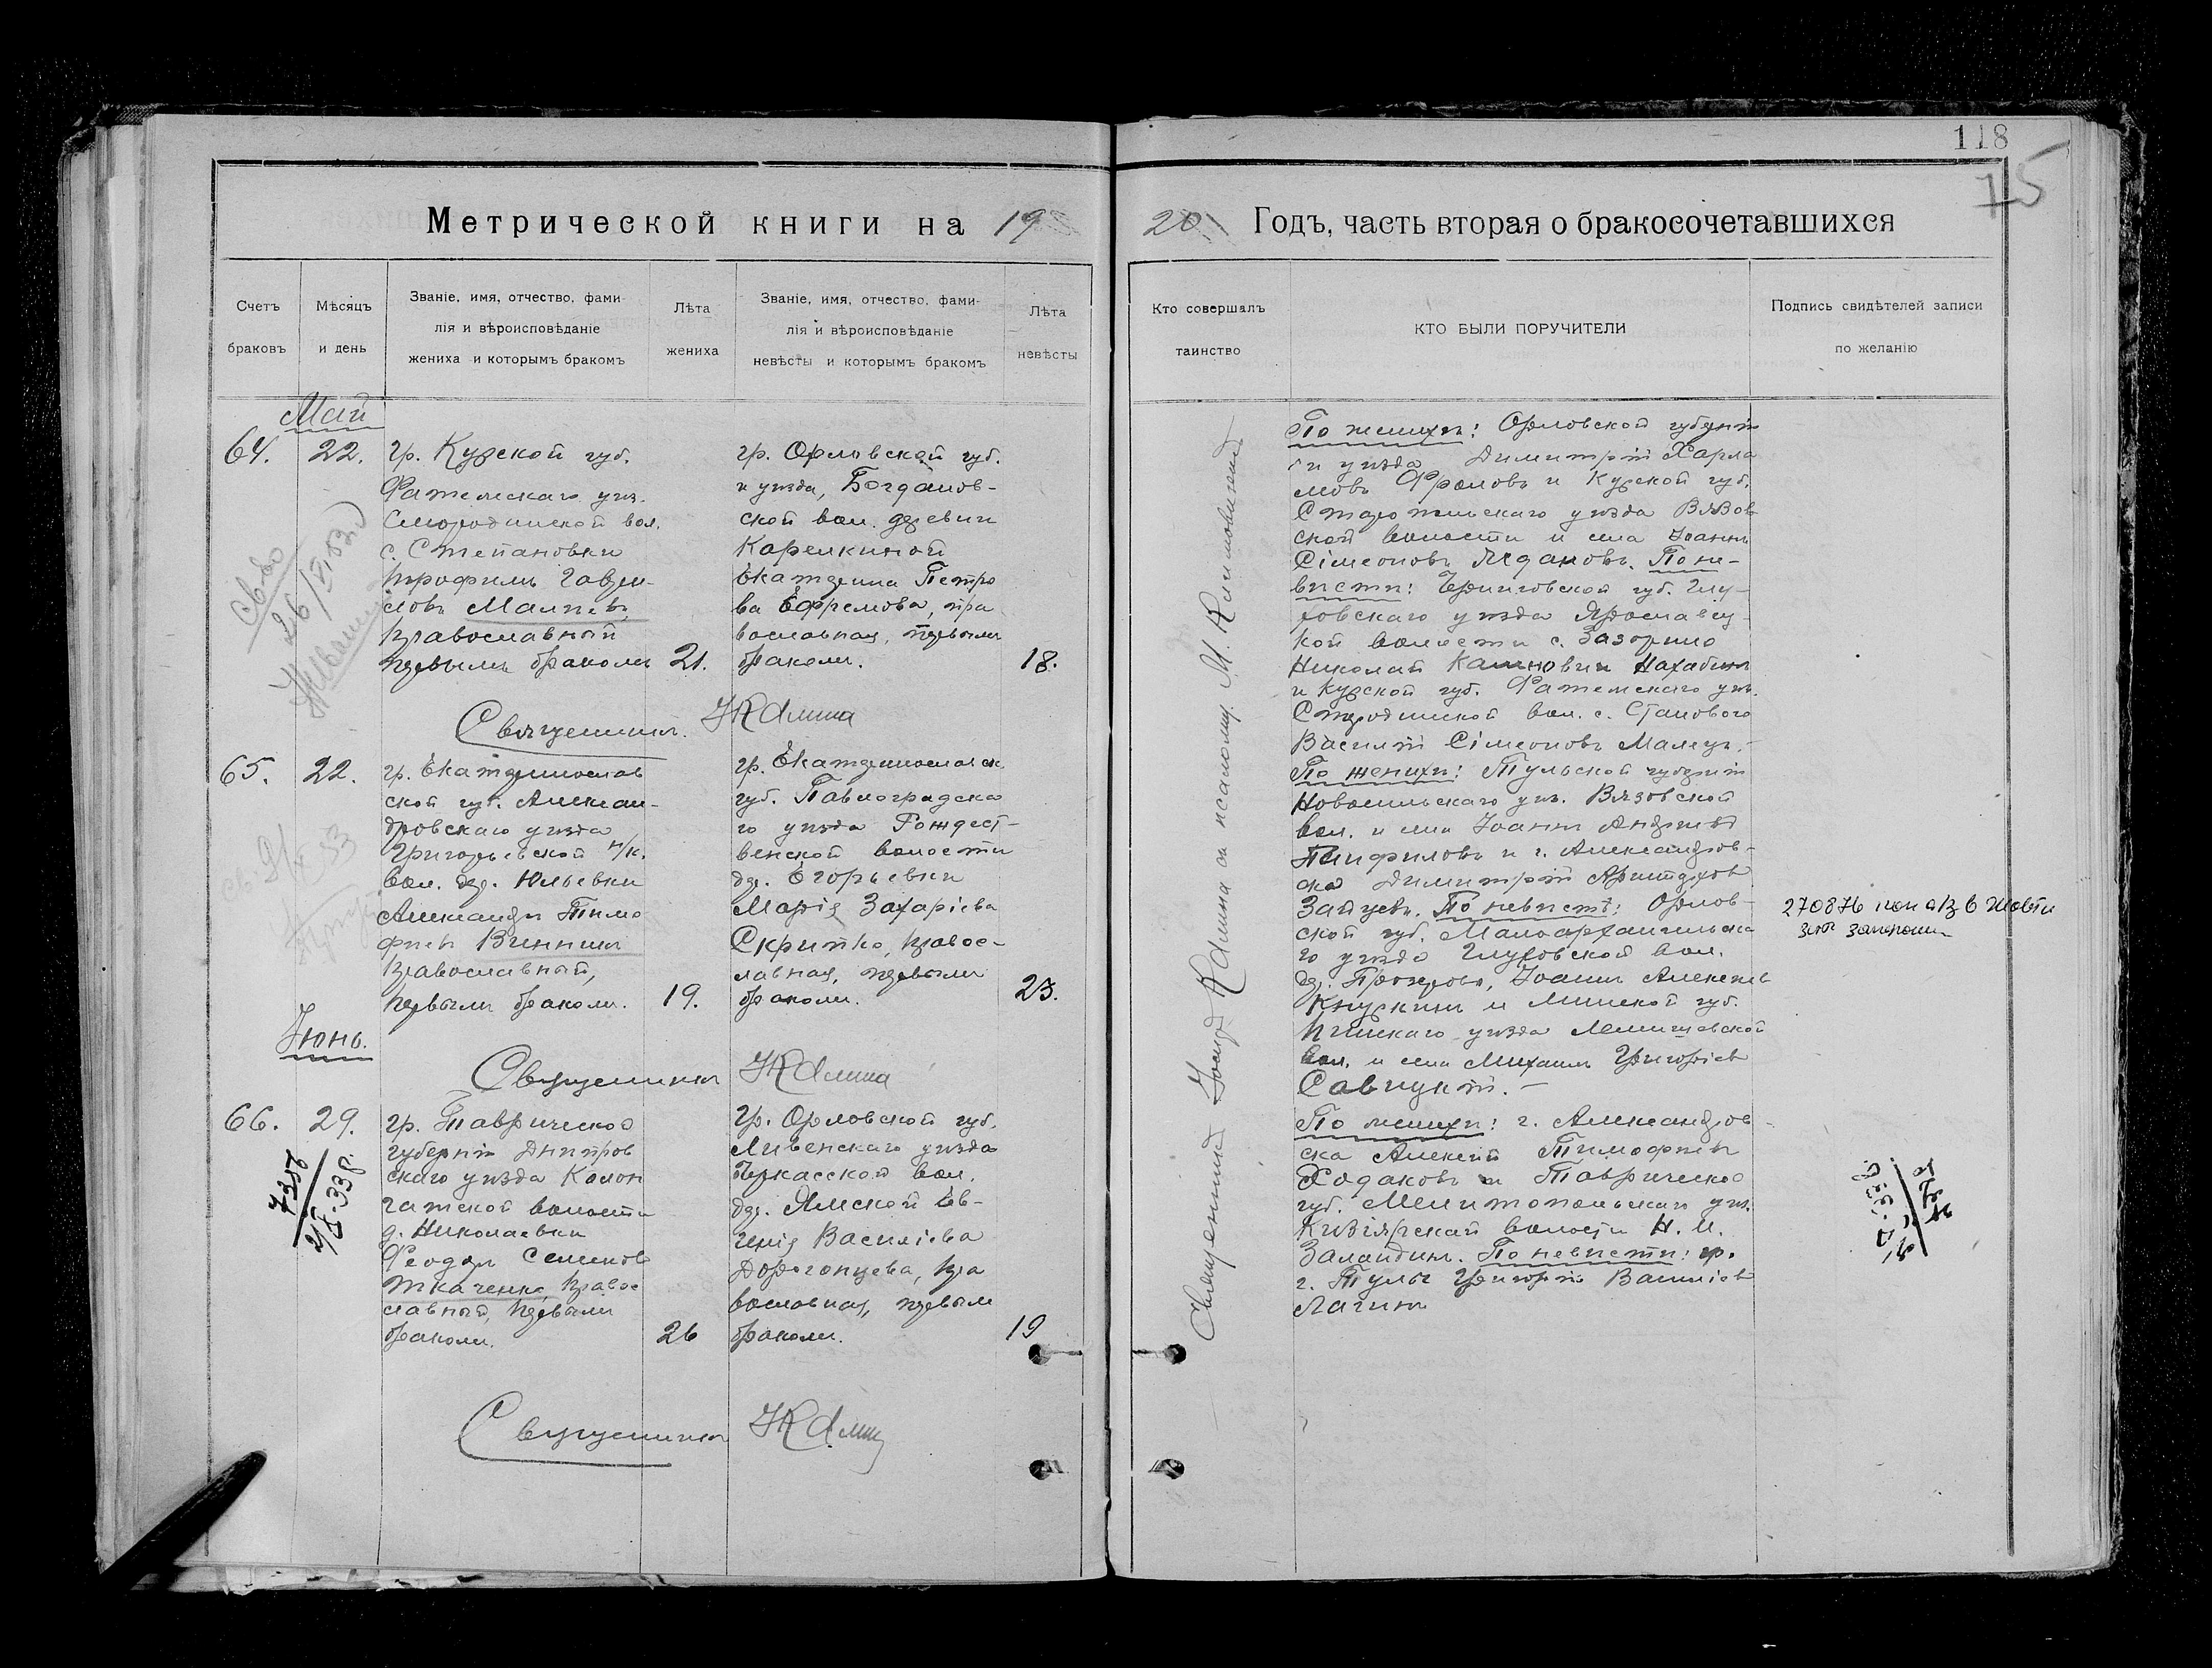 118
75
Метрической книги на 19
20 Годъ, часть вторая о бракосочетавшихся
Счетъ браковъ
Мѣсяцъ и день
Званіе, имя, отчество, фами-
лія и вѣроисповѣданіе
жениха и которымъ бракомъ
Лѣта жениха
Званіе, имя, отчество, фами-
лія и вѣроисповѣданіе
невѣсты и которымъ бракомъ
Лѣта невѣсты
Кто совершалъ таинство
КТО БЫЛИ ПОРУЧИТЕЛИ
Подпись свидѣтелей записи
по желанію
Май
64.
22.
гр. Курской губ.
Фатежскаго уѣз.
Смородинской вол.
с. Степановки
Трофимъ Гаврі-
иловъ
православный
первымъ бракомъ
21.
гр. Орловской губ.
и уѣзда, Богданов-
ской вол. деревни
Корелкиной
Екатерина Петро
ва Ефремова, пра
вославная, первымъ
бракомъ.
18.
Священникъ
І Калина
65.
22.
гр. Екатеринослав
ской губ. Алексан-
дровскаго уѣзда
Григорьевской н/к.
вол. дер. Юльевки
Александръ Тимо
феевъ Винникъ
православный,
первымъ бракомъ.
19.
гр. Екатеринославск.
губ. Павлоградска
го уѣзда Рождест-
венской волости
дер. Егорьевки
Марія Захаріева
Скрипко, правос-
лавная, первымъ
бракомъ.
23.
Іюнь.
Священникъ
І Калина
66.
29.
гр. Таврической
губерніи Днѣпров
скаго уѣзда Калон
гатской волости
д. Николаевки
Феодоръ Семенов
Ткаченко, правос
лавный, первымъ
бракомъ.
26
гр. Орловской губ.
Ливенскаго уѣзда
Черкасской вол.
дер. Ямской Ев-
генія Василіева
Дорогопцева, пра
вославная, первым
бракомъ.
19
Священникъ
І Калина
Священникъ Іоаннъ Калина за псаломщ. М. Климовичъ
По женихѣ: Орловской губерніи
и уѣзда Димитрій Харла
мовъ Фроловъ и Курской губ.
Старооскольскаго уѣзда Вязов
ской волости и села Іоаннъ
Сімеоновъ Ждановъ. По не-
вѣстѣ: Черниговской губ. Глу-
ховскаго уѣзда Ярославец
кой волости с. Зазорино
Николай
и Курской губ. Фатежскаго уѣз.
вол. с. Станового
Василій Сімеоновъ
По женихѣ: Тульской губерніи
Новосильскаго уѣз. Вязовской
вол. и села Іоаннъ Андреевъ
Панфиловъ и г. Александров-
ска Димитрій Аристархов
Зайцевъ. По невѣстѣ: Орлов-
ской губ. Малоархангельска
го уѣзда Глуховской вол.
дер. Прозорово, Іоаннъ Алексѣев
Кнуркинъ и Минской губ.
Пинскаго уѣзда Лемешевской
вол. и села Михаилъ Григоріев
Савицкій.
По женихѣ: г. Александров-
ска Алексѣй Тимофеевъ
Ходаковъ и Таврической
губ. Мелитопольскаго уѣз.
волости Н. И.
Заландинъ. По невѣстѣ: гр.
г. Тулы Григорій Василіев
Лагинъ
270876
7258